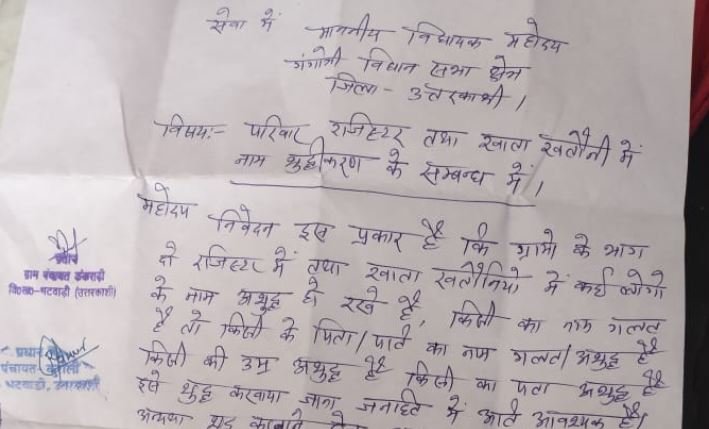 सेवा में
माननीय विधायक महोदय
गंगोत्री विधान सभा क्षेत्र
जिला - उत्तरकाशी।
विषय:- परिवार रजिस्टर तथा खाता खतौनी में
नाम शुद्धीकरण के सम्बन्ध में।
महोदय
निवेदन इस प्रकार है कि ग्रामों के भाग
दो रजिस्टर में तथा खाता खतौनियों में कई लोगों
के नाम अशुद्ध हो रखे हैं, किसी का नाम गलत
है तो किसी के पिता/पति का नाम गलत/अशुद्ध है
किसी की उम्र अशुद्ध है किसी का पता अशुद्ध है
इसे शुद्ध करवाया जाना जनहित में अति आवश्यक है।
ग्राम पंचायत
वि०ख०-भटवाड़ी (उत्तरकाशी)
प्रधान
पंचायत
भटवाड़ी, उत्तरकाशी